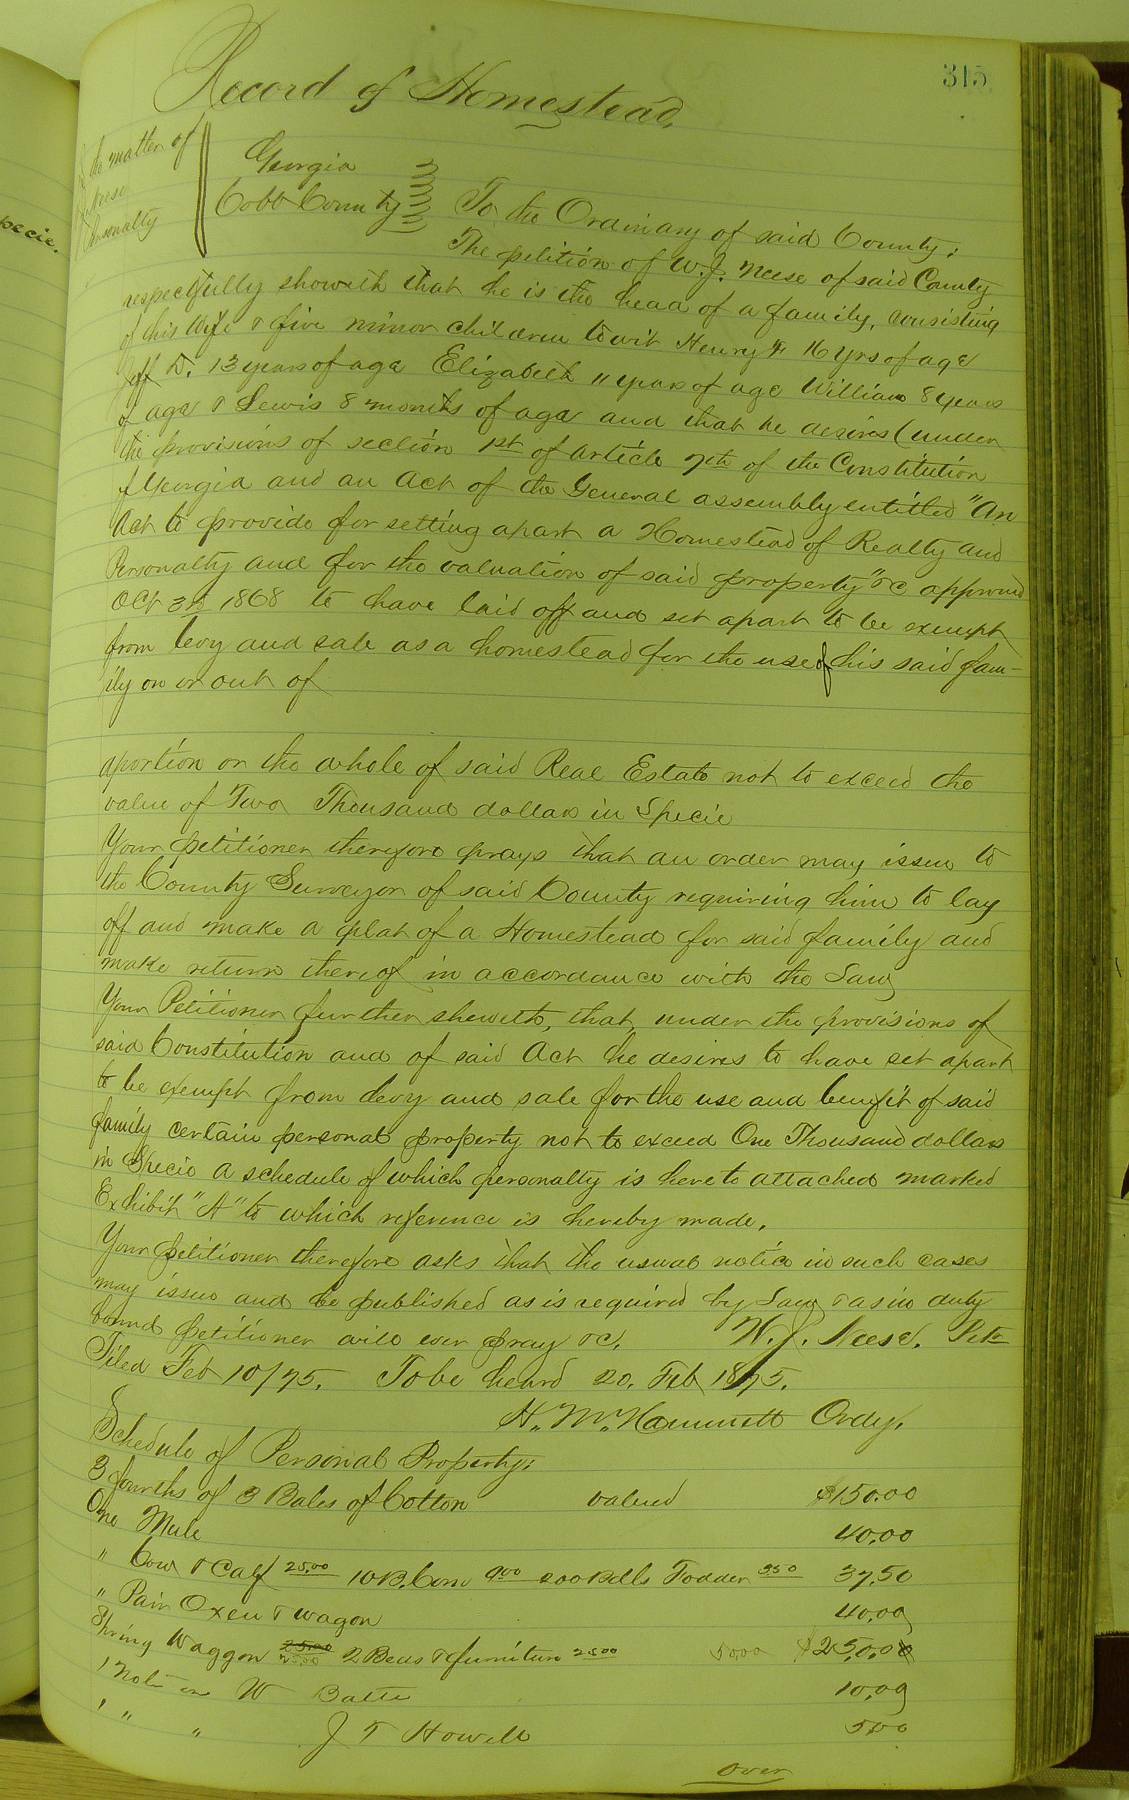 315
Record of Homestead.
the matter of
Neese
Personalty
pecie.
Georgia
Cobb County
To the Ordinary of said County;
The petition of W.J. Neese of said County
respectfully showeth that he is the head of a family, consisting
of his Wife & five minor children towit Henry F 16 yrs of age
Jeff D. 13 years of age Elizabeth 11 years of age William 8 years
of age & Lewis 8 months of age and that he desires (under
the provisions of section 1st of article 7th of the Constitution
of Georgia and an Act of the General assembly entitled "An
Act to provide for setting apart a Homestead of Realty and
Personalty and for the valuation of said property" &c approved
Oct 3d 1868 to have laid off and set apart to be exempt
from levy and sale as a homestead for the use of his said fam-
ily on or out of
aportion or the whole of said Real Estate not to exceed the
value of Two Thousand dollars in Specie
Your petitioner therefore prays that an order may issue to
the County Surveyor of said County requiring him to lay
off and make a plat of a Homestead for said family and
make return thereof in accordance with the Law
Your Petitioner further sheweth, that, under the provisions of
said Constitution and of said Act he desires to have set apart
to be exempt from levy and sale for the use and benefit of said
family certain personal property not to exceed One Thousand dollars
in Specie a schedule of which personalty is hereto attached marked
Exhibit "A" to which reference is hereby made.
Your petitioner therefore asks that the usual notice in such cases
may issue and be published as is required by Law & as in duty
bound petitioner will ever pray &c. W.J. Neese. Petr
Filed Feb 10/75. To be heard 20. Feb 1875.
H. M. Hammett Ordy.
Schedule of Personal Property;
3 fourths of 3 Bales of Cotton valued $150.00
One Mule 40.00
" Cow & Calf 25.00 10 B. Corn 9.00 200 Bdls Fodder 3.50 37.50
" Pair Oxen & wagon 40.00
Spring Waggon 25.00 25.00 2 Beds & furniture 25.00 50.00 $250.00
1 Note on W Batte 10.00
1 " " J T Howell 5.00
over